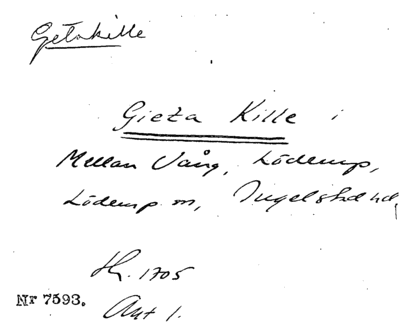 Getakille
Gieta Kille i
Mellan Vång, Löderup,
Löderup sn, Ingelstad hd,
Lh. 1705
Nr 7593.
Akt 1.